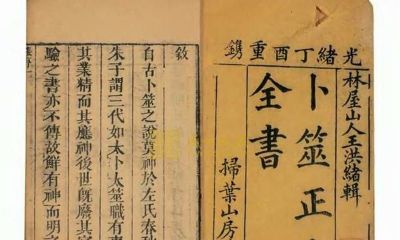 光緒丁酉重鐫
林屋山人王洪緒輯
卜筮正
全書
掃葉山房
敘
自古卜筮之說莫神於左氏春秋
朱子謂三代如太卜太筮職有專
其業精而其應神後世旣廢其官
驗之書亦不傳故鮮有神而明之